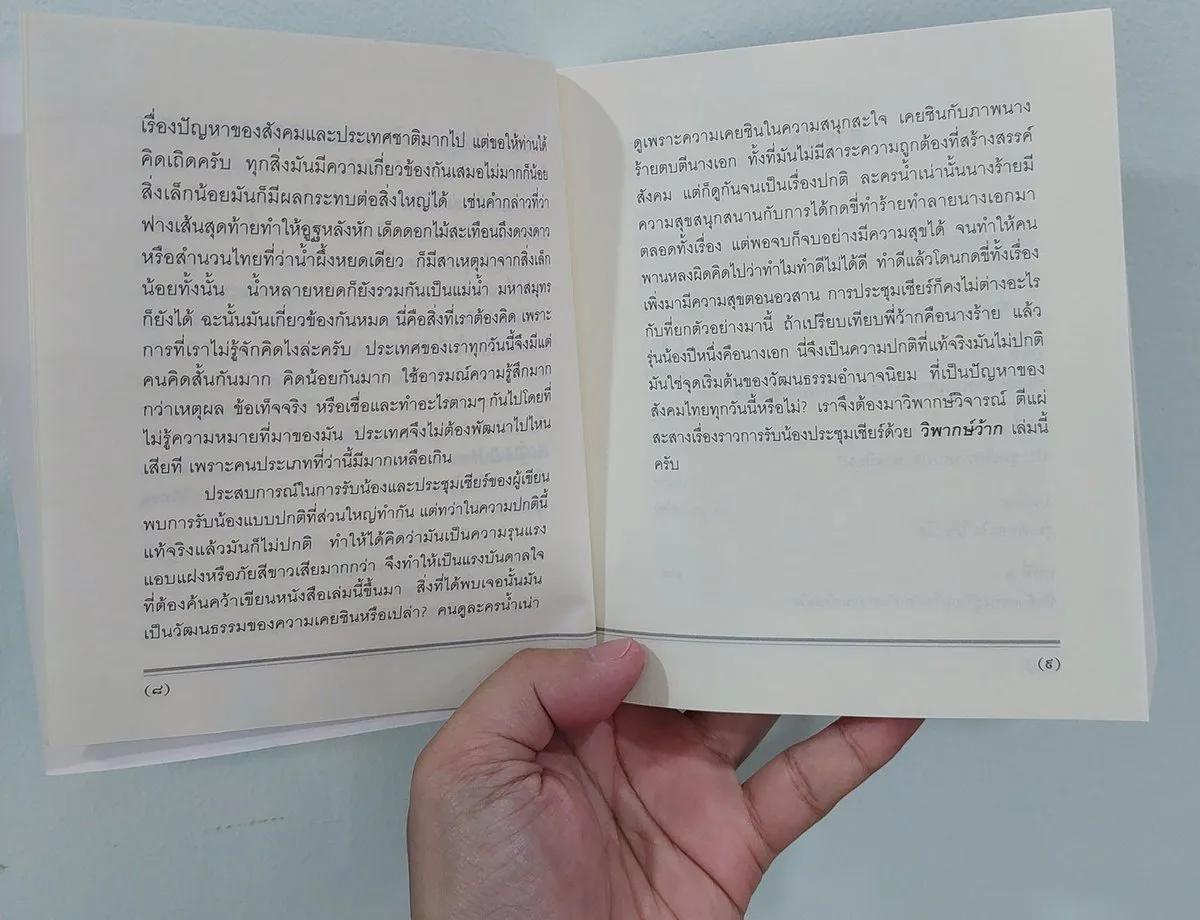 เรื่องปัญหาของสังคมและประเทศชาติมากไป แต่ขอให้ท่านได้
คิดเถิดครับ ทุกสิ่งมันมีความเกี่ยวข้องกันเสมอไม่มากก็น้อย
สิ่งเล็กน้อยมันก็มีผลกระทบต่อสิ่งใหญ่ได้ เช่นคำกล่าวที่ว่า
ฟางเส้นสุดท้ายทำให้อูฐหลังหัก เด็ดดอกไม้สะเทือนถึงดวงดาว
หรือสำนวนไทยที่ว่าน้ำผึ้งหยดเดียว ก็มีสาเหตุมาจากสิ่งเล็ก
น้อยทั้งนั้น น้ำหลายหยดก็ยังรวมกันเป็นแม่น้ำ มหาสมุทร
ก็ยังได้ ฉะนั้นมันเกี่ยวข้องกันหมด นี่คือสิ่งที่เราต้องคิด เพราะ
การที่เราไม่รู้จักคิดไงล่ะครับ ประเทศของเราทุกวันนี้จึงมีแต่
คนคิดสั้นกันมาก คิดน้อยกันมาก ใช้อารมณ์ความรู้สึกมาก
กว่าเหตุผล ข้อเท็จจริง หรือเชื่อและทำอะไรตามๆ กันไปโดยที่
ไม่รู้ความหมายที่มาของมัน ประเทศจึงไม่ต้องพัฒนาไปไหน
เสียที เพราะคนประเภทที่ว่านี้มีมากเหลือเกิน
ประสบการณ์ในการรับน้องและประชุมเชียร์ของผู้เขียน
พบการรับน้องแบบปกติที่ส่วนใหญ่ทำกัน แต่ทว่าในความปกตินี้
แท้จริงแล้วมันก็ไม่ปกติ ทำให้ได้คิดว่ามันเป็นความรุนแรง
แอบแฝงหรือภัยสีขาวเสียมากกว่า จึงทำให้เป็นแรงบันดาลใจ
ที่ต้องค้นคว้าเขียนหนังสือเล่มนี้ขึ้นมา สิ่งที่ได้พบเจอนั้นมัน
เป็นวัฒนธรรมของความเคยชินหรือเปล่า? คนดูละครน้ำเน่า
(๘)
ดูเพราะความเคยชินในความสนุกสะใจ เคยชินกับภาพนาง
ร้ายตบตีนางเอก ทั้งที่มันไม่มีสาระความถูกต้องที่สร้างสรรค์
สังคม แต่ก็ดูกันจนเป็นเรื่องปกติ ละครน้ำเน่านั้นนางร้ายมี
ความสุขสนุกสนานกับการได้กดขี่ทำร้ายทำลายนางเอกมา
ตลอดทั้งเรื่อง แต่พอจบก็จบอย่างมีความสุขได้ จนทำให้คน
พานหลงผิดคิดไปว่าทำไมทำดีไม่ได้ดี ทำดีแล้วโดนกดขี่ทั้งเรื่อง
เพิ่งมามีความสุขตอนอวสาน การประชุมเชียร์ก็คงไม่ต่างอะไร
กับที่ยกตัวอย่างมานี้ ถ้าเปรียบเทียบพี่ว้ากคือนางร้าย แล้ว
รุ่นน้องปีหนึ่งคือนางเอก นี่จึงเป็นความปกติที่แท้จริงมันไม่ปกติ
มันใช่จุดเริ่มต้นของวัฒนธรรมอำนาจนิยม ที่เป็นปัญหาของ
สังคมไทยทุกวันนี้หรือไม่? เราจึงต้องมาวิพากษ์วิจารณ์ ตีแผ่
สะสางเรื่องราวการรับน้องประชุมเชียร์ด้วย วิพากษ์ว้าก เล่มนี้
ครับ
(๙)